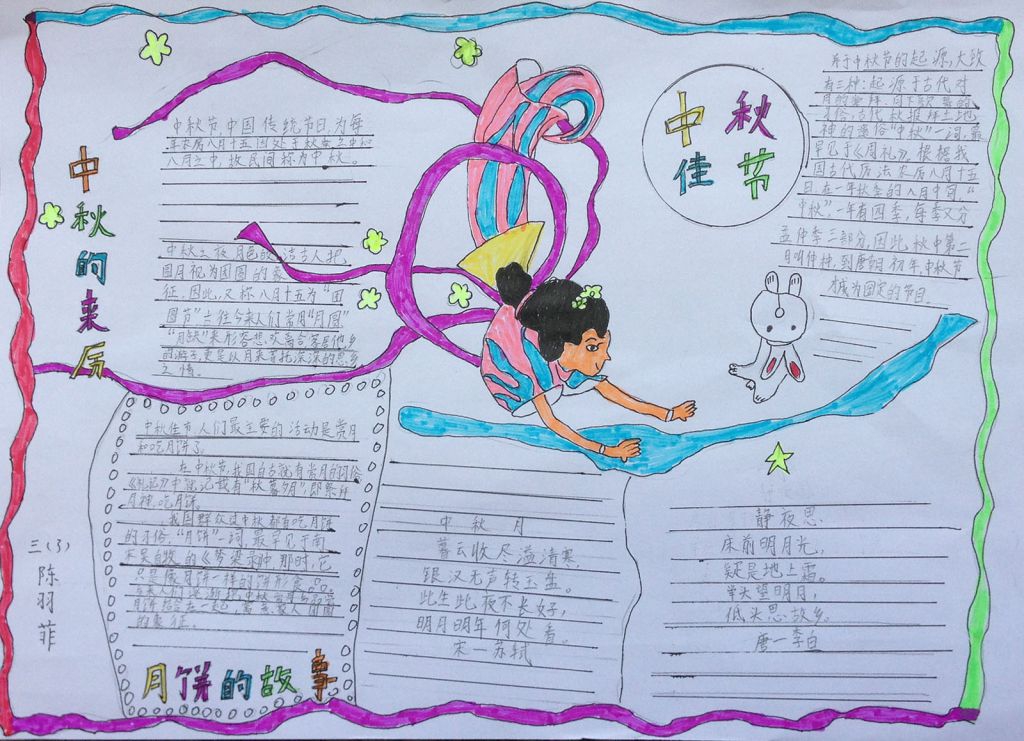 中秋的来历
中秋节,中国传统节日,为每
年农历八月十五,因处于秋季之中和
八月之中,故民间称为中秋。
中秋之夜,月色皎洁,古人把
圆月视为团圆的象
征,因此,又称八月十五为“团
圆节”古往今来人们常用“月圆”
“月缺”来形容悲欢离合,客居他乡
的游子,更是以月来寄托深深的思乡
之情。
中秋
佳节
关于中秋节的起源,大致
有三种:起源于古代对
月的崇拜、月下歌舞的
习俗,古代秋报拜土地
神的遗俗“中秋”一词,最
早见于《周礼》。根据我
国古代历法,农历八月十五
日,在一年秋季的八月中间,“
中秋”,一年有四季,每季又分
孟仲季三部分,因此,秋中第二
月叫仲秋,到唐朝初年,中秋节
才成为固定的节日。
中秋佳节,人们最主要的活动是赏月
和吃月饼了。
在中秋节,我国自古就有赏月的习俗
《礼记》中就记载有“秋暮夕月”,即祭拜
月神,吃月饼
我国群众过中秋都有吃月饼
的习俗,“月饼”一词,最早见于南
宋吴自牧的《梦粱录》中那时,它
只是像月饼一样的饼形食
月饼结合在一起
的象征。
月饼的故事
三(3)
陈羽菲
中秋月
暮云收尽溢清寒,
银汉无声转玉盘。
此生此夜不长好,
明月明年何处看。
宋一苏轼
静夜思
床前明月光,
疑是地上霜。
举头望明月,
低头思故乡。
唐一李白